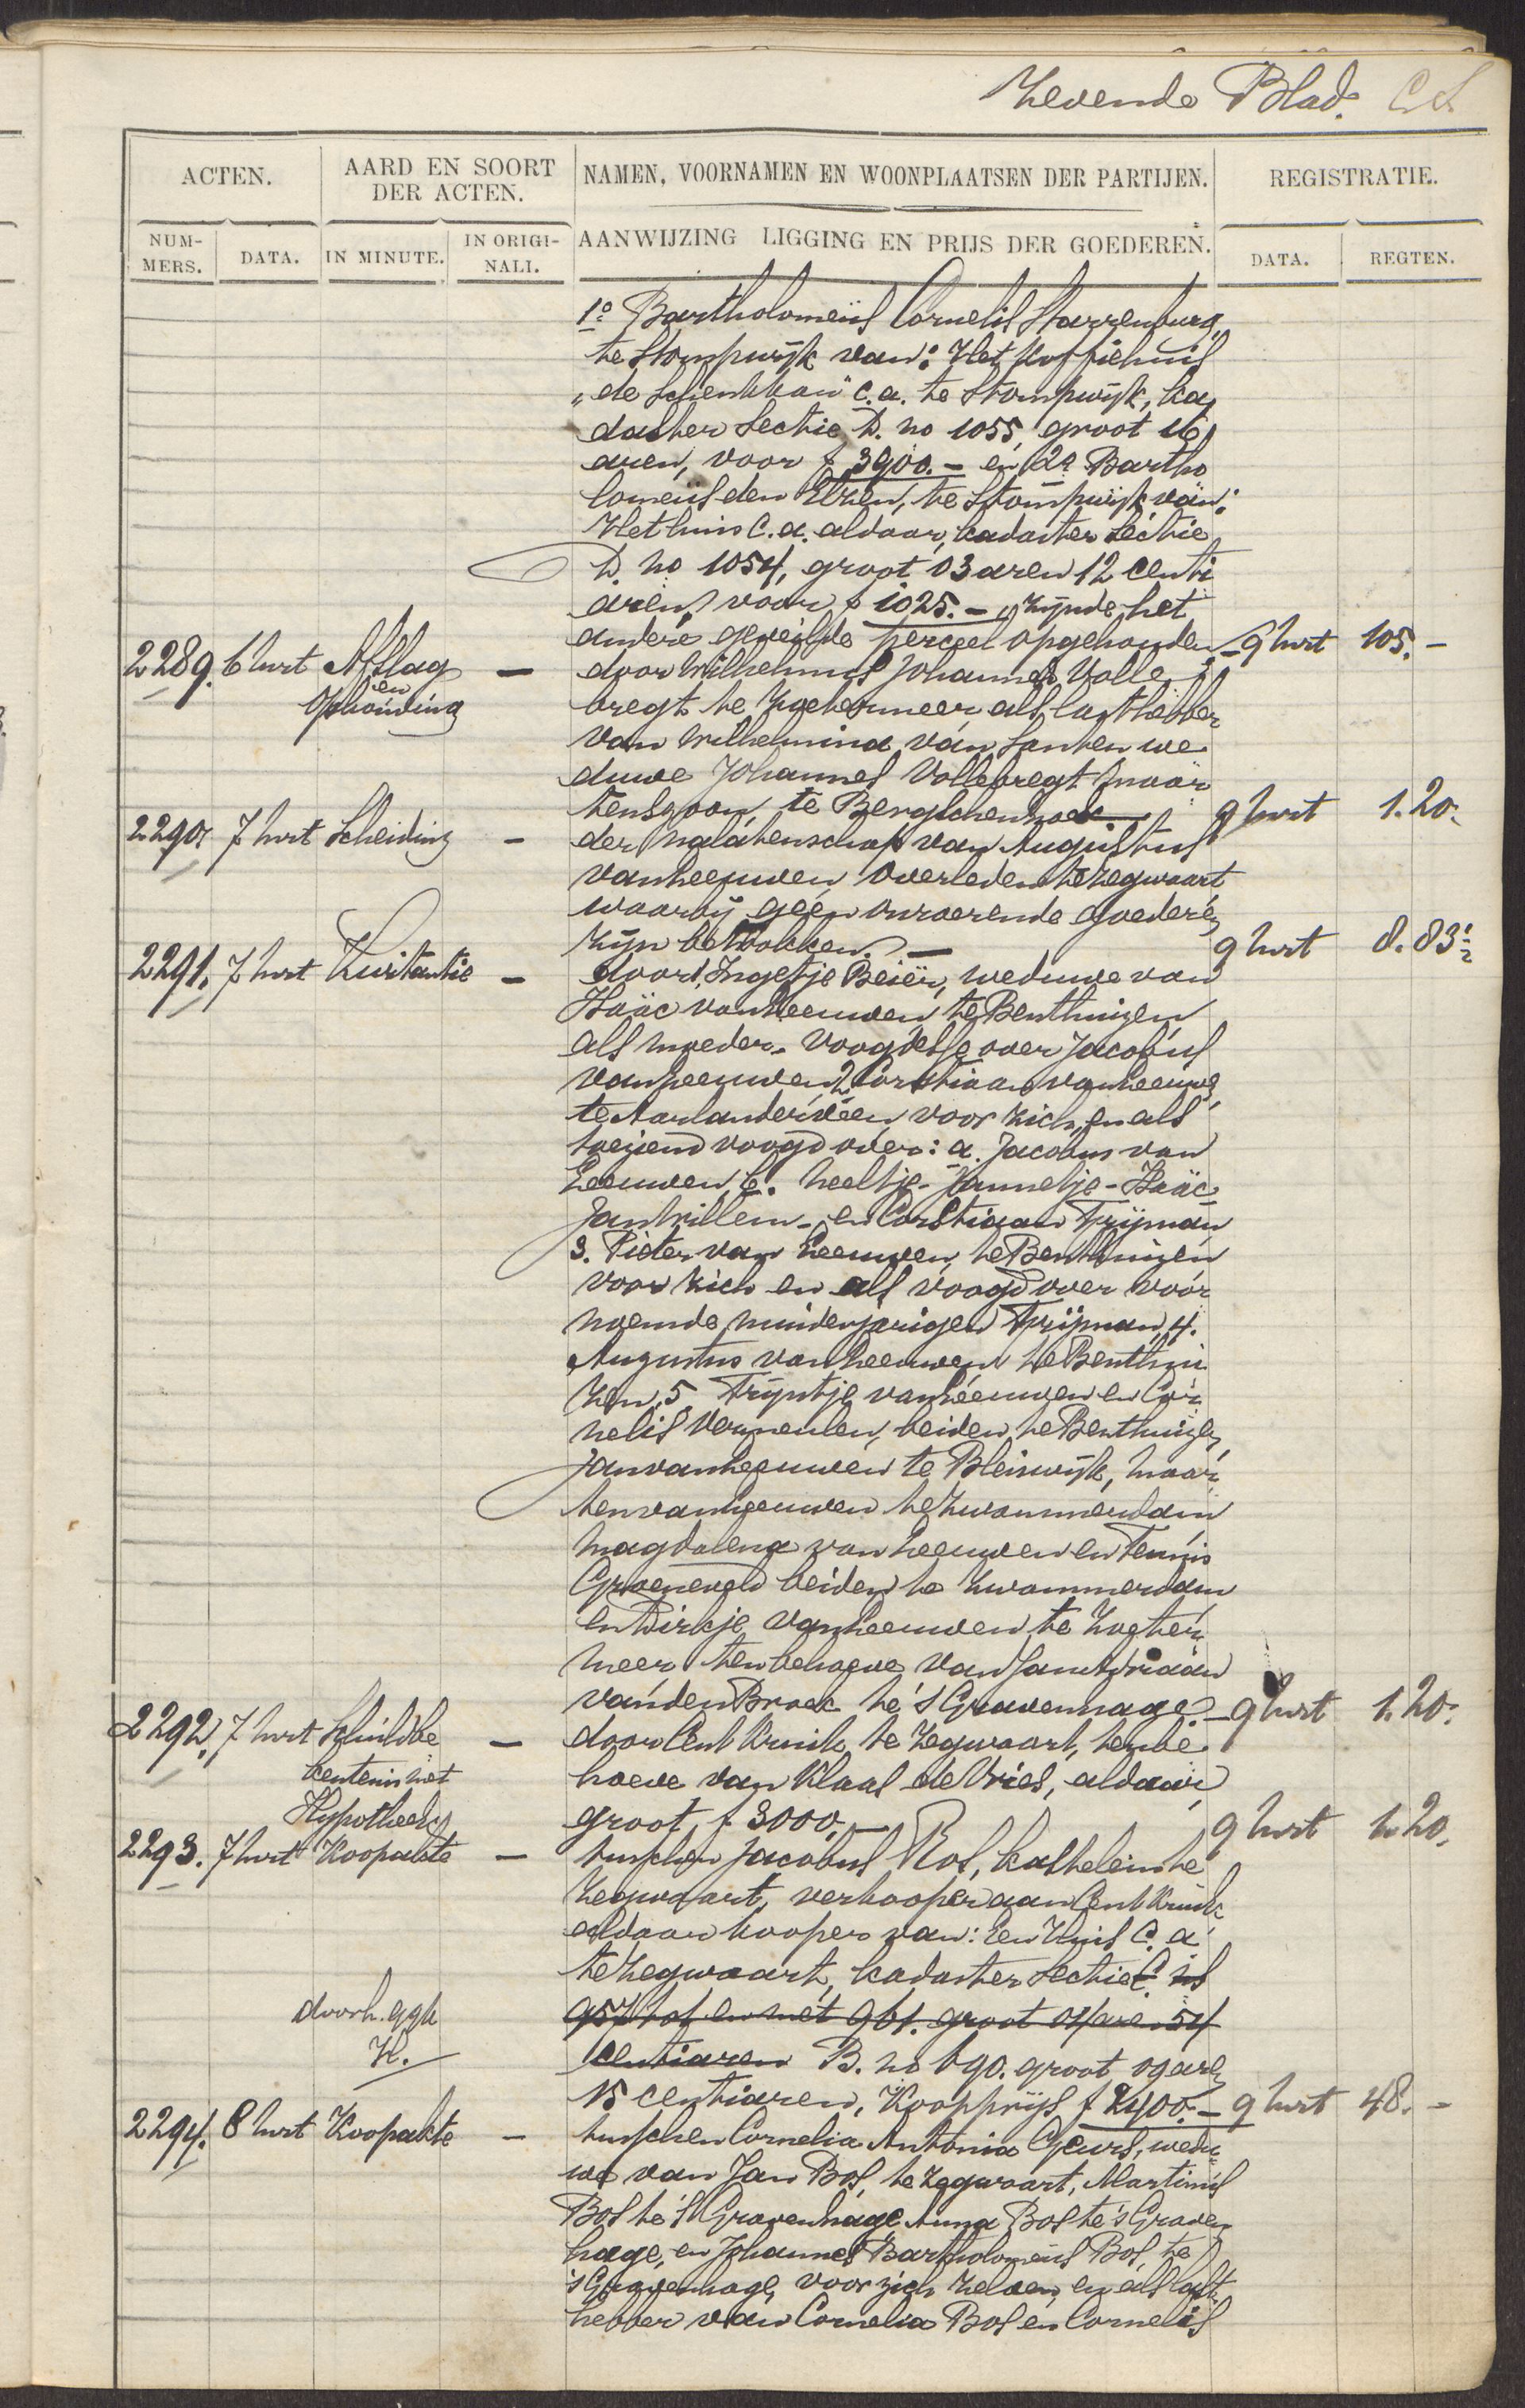 Zevende Blad. C.S.
ACTEN.
AARD EN SOORT
DER ACTEN.
NAMEN, VOORNAMEN EN WOONPLAATSEN DER PARTIJEN.
REGISTRATIE.
NUM-
MERS.
DATA.
IN MINUTE.
IN ORIGI-
NALI.
AANWIJZING LIGGING EN PRIJS DER GOEDEREN.
DATA.
REGTEN.
1o Bartholomeüs Cornelis Starrenburg,
te Stompwijk van: Het koffiehuis
„de Schenkkan" c.a. te Stompwijk, ka
daster Sectie D. no 1055, groot 16
aren, voor f 3900.- en 2o Bartho
lomeüs den Elzen, te Stompwijk van:
Het huis c.a. aldaar, kadaster Sectie
D. no 1054, groot 03 aren 12 centi
aren, voor f 1025.- zijnde het
andere geveilde perceel opgehouden. - 9 hrt 105.-
2289. 6 hrt Afslag - door Wilhelmus Johannes Volle
en
Ophouding bregt te Zoetermeer, als lasthebber
van Wilhelmina van Santen we
duwe Johannes Vollebregt Maar
tenszoon, te Bergschenhoek. 9 hrt 1.20.
2290. 7 hrt Scheiding - der nalatenschap van Augustus
van Leeuwen overleden te Zegwaart,
waarbij geen onroerende goederen
zijn betrokken. - 9 hrt 8.83½
2291. 7 hrt Kwitantie - door 1. Ingetje Beijer, weduwe van
Isaäc van Leeuwen, te Benthuizen
als moeder-voogdesse over Jacobus
van Leeuwen, 2. Corstiaan van Leeuwen,
te Aarlanderveen, voor zich, en als
toeziend voogd over: a. Jacobus van
Leeuwen, b. Neeltje-Jannetje-Isaäc
Jan Willem- en Corstiaan Trijman
3. Pieter van Leeuwen, te Benthuizen
voor zich en als voogd over voor
noemde minderjarigen Trijman, 4.
Augustus van Leeuwen te Benthui
zen, 5. Trijntje van Leeuwen en Cor
nelis Vermeulen, beiden te Benthuizen,
Jan van Leeuwen te Bleiswijk, Maar
ten van Leeuwen te Zwammerdam
Magdalena van Leeuwen en Teunis
Groeneveld beiden te Zwammerdam
en Dirkje van Leeuwen te Zoeter
meer, ten behoeve van Jan Adriaan
van den Broek te 's Gravenhage. - 9 hrt 1.20.
2292. 7 hrt Schuldbe - door Cent Kruik, te Zegwaart, ten be
kentenis met hoeve van Klaas de Vries, aldaar,
Hypotheek groot f 3000.- 9 hrt 1.20.
2293. 7 hrt Koopakte - tusschen Jacobus Ros, kastelein te
Zegwaart, verkooper aan Cent Kruik
aldaar kooper van: Een Huis c.a.
te Zegwaart, kadaster Sectie C. no
doorh. ggk 957 tot en met 961. groot 04 aren 54
H. centiaren B. no 690. groot 09 aren
15 centiaren, Koopprijs f 2400.- 9 hrt 48.-
2294. 8 hrt Koopakte - tusschen Cornelia Antonia Geurs, wedu
we van Jan Bos, te Zegwaart, Martinus
Bos te 's Gravenhage, Anna Bos te 's Graven
hage, en Johannes Bartholomeus Bos, te
's Gravenhage, voor zich zelven, en als last
hebber van Cornelia Bos en Cornelis